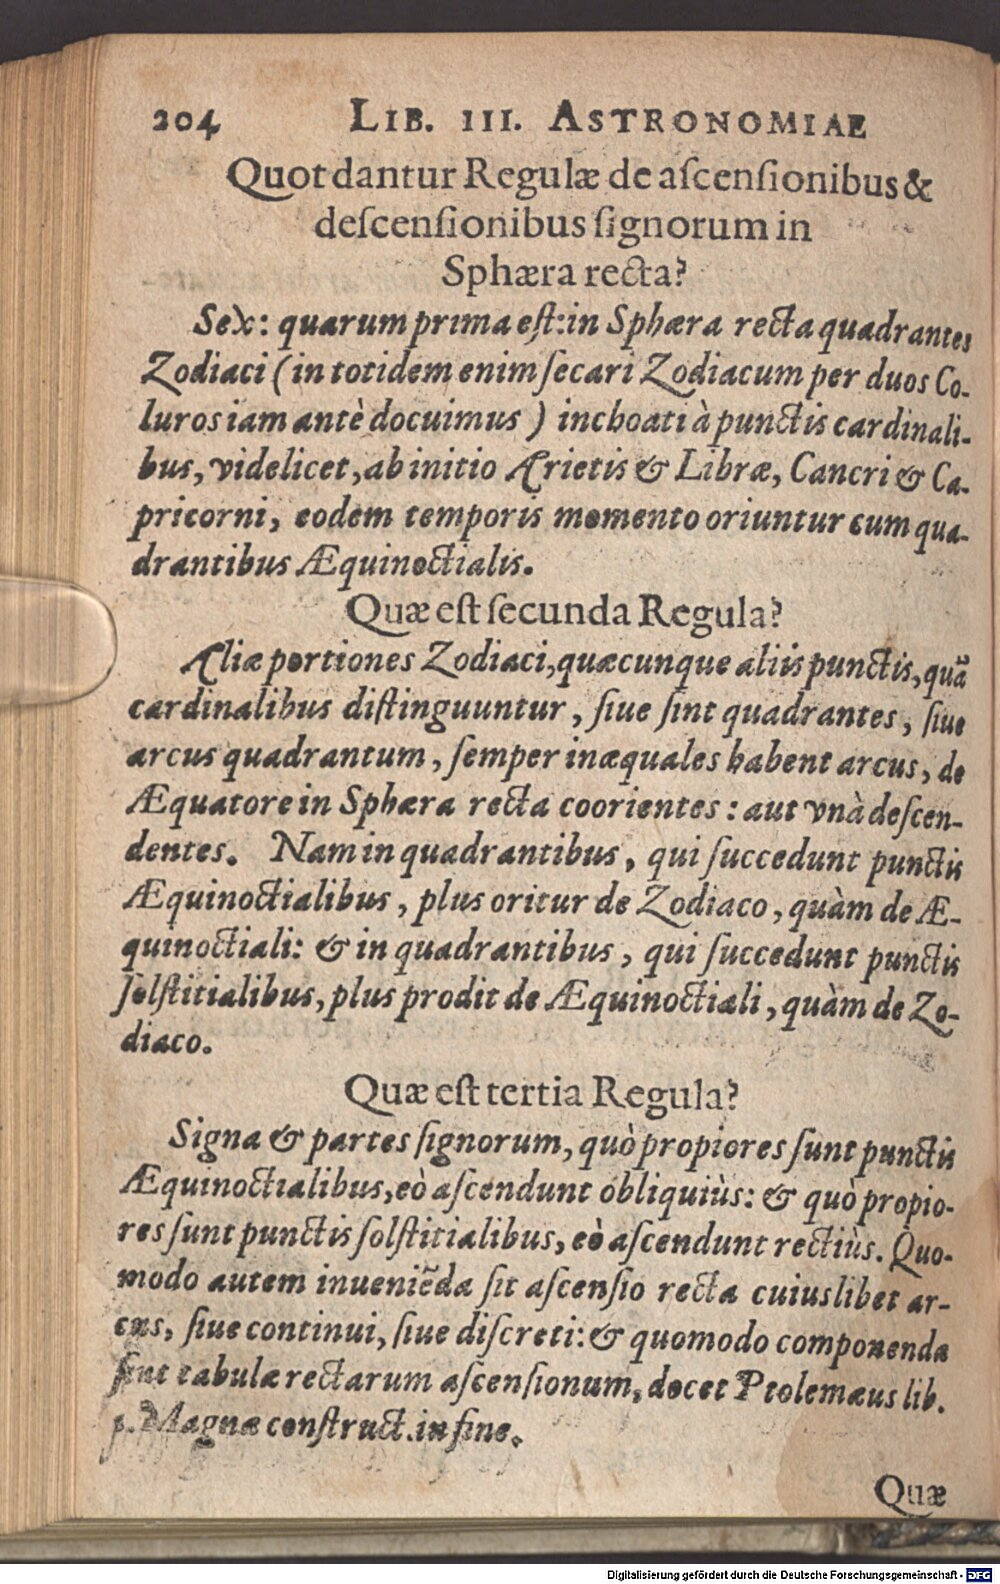 204 LIB. III. ASTRONOMIAE
Quot dantur Regulæ de aſcenſionibus &
deſcenſionibus ſignorum in
Sphæra recta?
Sex: quarum prima eſt: in Sphæra recta quadrantes
Zodiaci (in totidem enim ſecari Zodiacum per duos Co-
luros iam antè docuimus) inchoati à punctis cardinali-
bus, videlicet, ab initio Arietis & Libræ, Cancri & Ca-
pricorni, eodem temporis momento oriuntur cum qua-
drantibus Æquinoctialis.
Quæ eſt ſecunda Regula?
Aliæ portiones Zodiaci, quæcunque aliis punctis, quã
cardinalibus diſtinguuntur, ſiue ſint quadrantes, ſiue
arcus quadrantum, ſemper inæquales habent arcus, de
Æquatore in Sphæra recta coorientes: aut vnà deſcen-
dentes. Nam in quadrantibus, qui ſuccedunt punctis
Æquinoctialibus, plus oritur de Zodiaco, quàm de Æ-
quinoctiali: & in quadrantibus, qui ſuccedunt punctis
ſolſtitialibus, plus prodit de Æquinoctiali, quàm de Zo-
diaco.
Quæ eſt tertia Regula?
Signa & partes ſignorum, quò propiores ſunt punctis
Æquinoctialibus, eò aſcendunt obliquiùs: & quò propio-
res ſunt punctis ſolſtitialibus, eò aſcendunt rectiùs. Quo-
modo autem inueniẽda ſit aſcenſio recta cuiuslibet ar-
cus, ſiue continui, ſiue diſcreti: & quomodo componenda
ſint tabulæ rectarum aſcenſionum, docet Ptolemæus lib.
Magnæ conſtruct. in fine.
Quæ
Digitalisierung gefördert durch die Deutsche Forschungsgemeinschaft - DFG